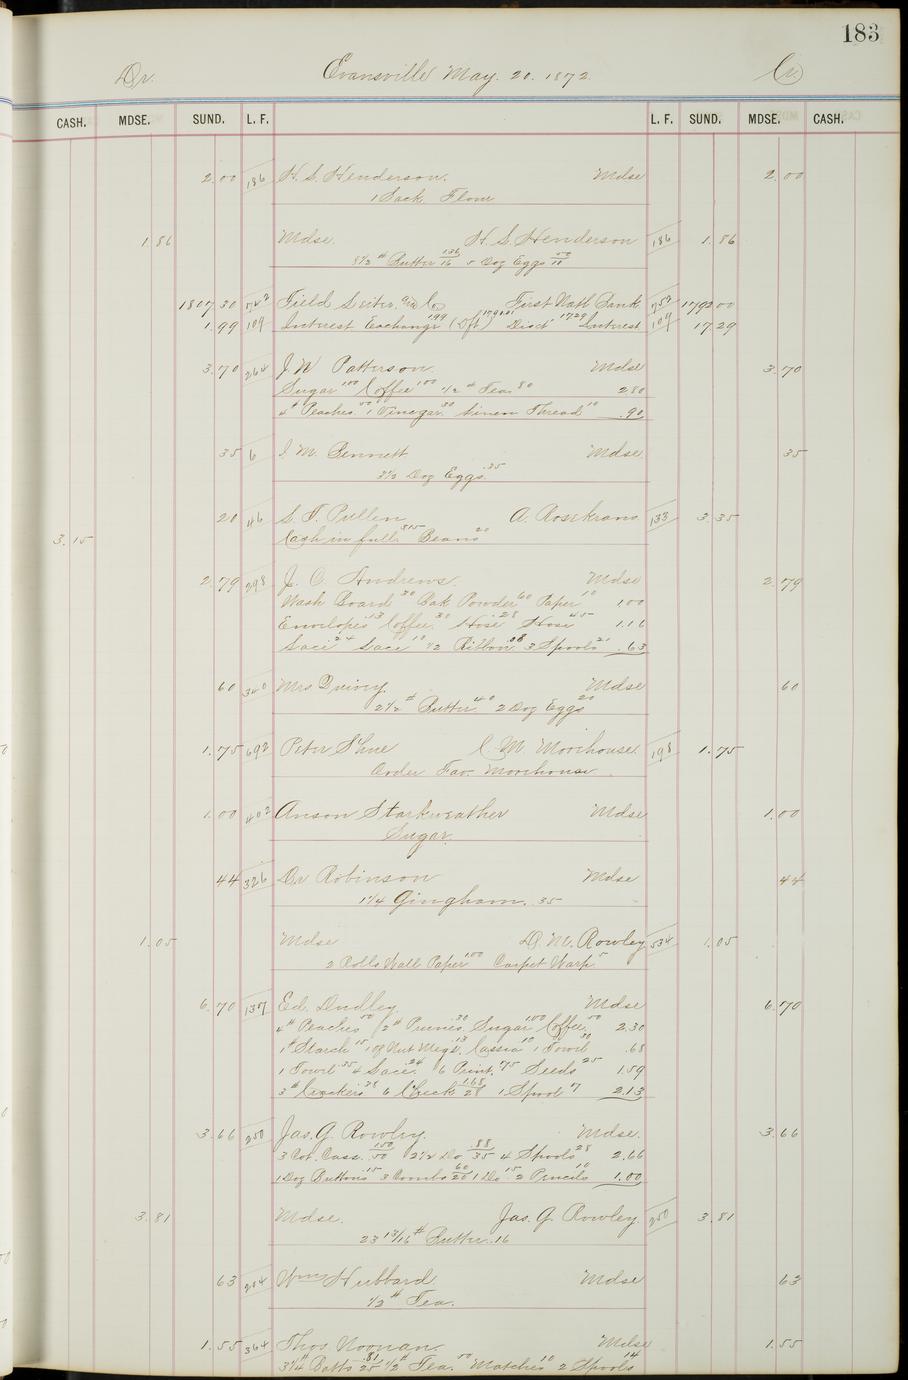 183
Dr. Evansville May. 20. 1872. Cr
CASH. MDSE. SUND. L. F. L. F. SUND. MDSE. CASH.
2.00 186 H. S. Henderson. Mdse 2.00
1 Sack Flour
1.86 Mdse. H. S. Henderson 186 1.86
8 1/2 # Butter 136/16 5 Doz Eggs 50/10
1807 30 542 Field Leiter & Co First Natl Bank 252 1792 00
1.99 109 Interest Exchange 1.99 (Dft) Disct 17 29 Interest 109 17 29
3.70 264 J. W. Patterson. Mdse 3.70
Sugar 100 Coffee 100 1/2 # Tea 80 2 80
4 # Peaches 50 1 Vinegar 30 Linen Thread 10 .90
35 6 I. M. Bennett Mdse 35
3 1/2 Doz Eggs .35
20 46 S. T. Pullen A. Rosekrans 133 3.35
3.15 Cash in full 315 Beans 20
2.79 298 J. C. Andrews. Mdse 2.79
Wash Board 30 Bak Powder 60 Paper 10 1.00
Envelopes .13 Coffee .30 Hose .28 Hose 45 1.16
Lace 24 Lace 10 1/2 Ribbon .08 3 Spools 21 .63
60 340 Mrs Quivey. Mdse 60
2 1/2 # Butter 40 2 Doz Eggs 20
1.75 692 Peter Shue C. M. Morehouse 198 1.75
Order Fav. Morehouse
1.00 402 Anson Starkweather Mdse 1.00
Sugar.
44 326 Dr Robinson Mdse 44
1 1/4 Gingham. 35
1.05 Mdse D. M. Rowley 534 1.05
2 Rolls Wall Paper 1.00 Carpet Warp 5
6.70 137 Ed. Dudley. Mdse 6.70
4 # Peaches 50 2 # Prunes .30 Sugar 1.00 Coffee 50 2.30
1 # Starch 15 1 oz Nut Megs .13 Cassia 10 1 Towel 30 .68
1 Towel .35 4 Lace .24 6 Print .75 Seeds 25 1.59
3 # Crackers 38 6 Check 1.68/28 1 Spool 7 2.13
3.66 250 Jas. G. Rowley. Mdse. 3.66
3 Cot. Cass. 1.50/50 2 1/2 Do .88/35 4 Spools 28 2.66
1 Doz Buttons 15 3 Combs 60/20 1 Do 15 2 Pencils 10 1.00
3.81 Mdse. Jas. G. Rowley. 250 3.81
23 13/16 # Butter .16
63 204 Wm Hubbard Mdse 63
1/2 # Tea.
1.55 364 Thos Noonan. Mdse 1.55
3 1/4 # Batts .81/25 1/2 # Tea. 50 Matches 10 2 Spools 14